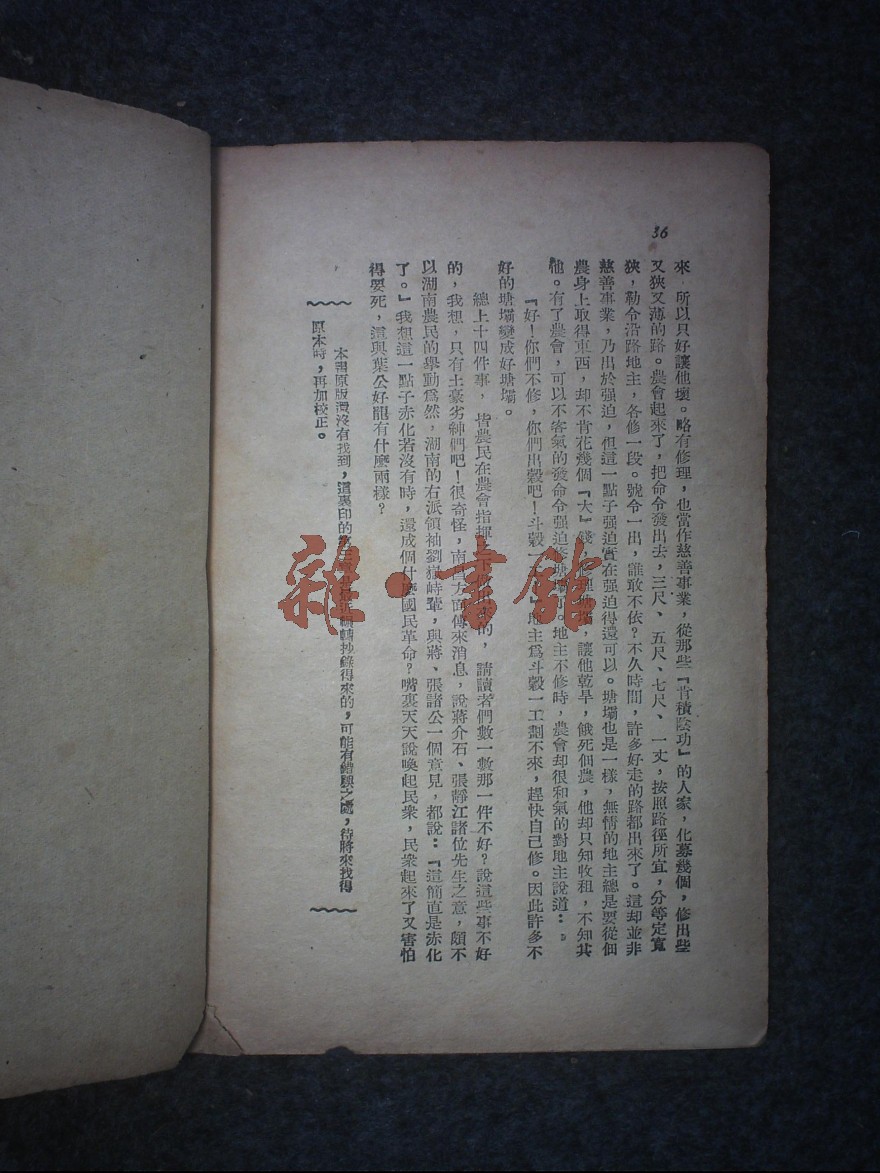 36
來 所以只好讓他壞。略有修理，也當作慈善事業，從那些『肯積陰功』的人家，化募幾個，修出些
又狹又薄的路。農會起來了，把命令發出去，三尺、五尺、七尺、一丈，按照路徑所宜，分等定寬
狹，勒令沿路地主，各修一段。號令一出，誰敢不依？不久時間，許多好走的路都出來了。這却並非
慈善事業，乃出於强迫，但這一點子强迫實在强迫得還可以。塘壩也是一樣，無情的地主總是要從佃
農身上取得東西，却不肯花幾個『大』錢 讓他乾旱，餓死佃農，他却只知收租，不知其
他。有了農會，可以不客氣的發命令强迫 塘壩了。地主不修時，農會却很和氣的對地主說道：。
『好！你們不修，你們出穀吧！斗穀一工 』地主爲斗穀一工劃不來，趕快自己修。因此許多不
好的塘壩變成好塘壩。
總上十四件事， 皆農民在農會指揮之下做出來的，請讀者們數一數那一件不好？說這些事不好
的，我想，只有土豪劣紳們吧！很奇怪，南昌方面傳來消息，說蔣介石、張靜江諸位先生之意，頗不
以湖南農民的舉動爲然，湖南的右派領袖劉嶽峙輩，與蔣、張諸公一個意見，都說：『這簡直是赤化
了。』我想這一點子赤化若沒有時，還成個什麼國民革命？嘴裏天天說喚起民衆，民衆起來了又害怕
得要死，這與葉公好龍有什麼兩樣？
本書原版還沒有找到，這裏印的 輯抄錄得來的，可能有錯誤之處，待將來找得
原本時，再加校正。
雜·書館